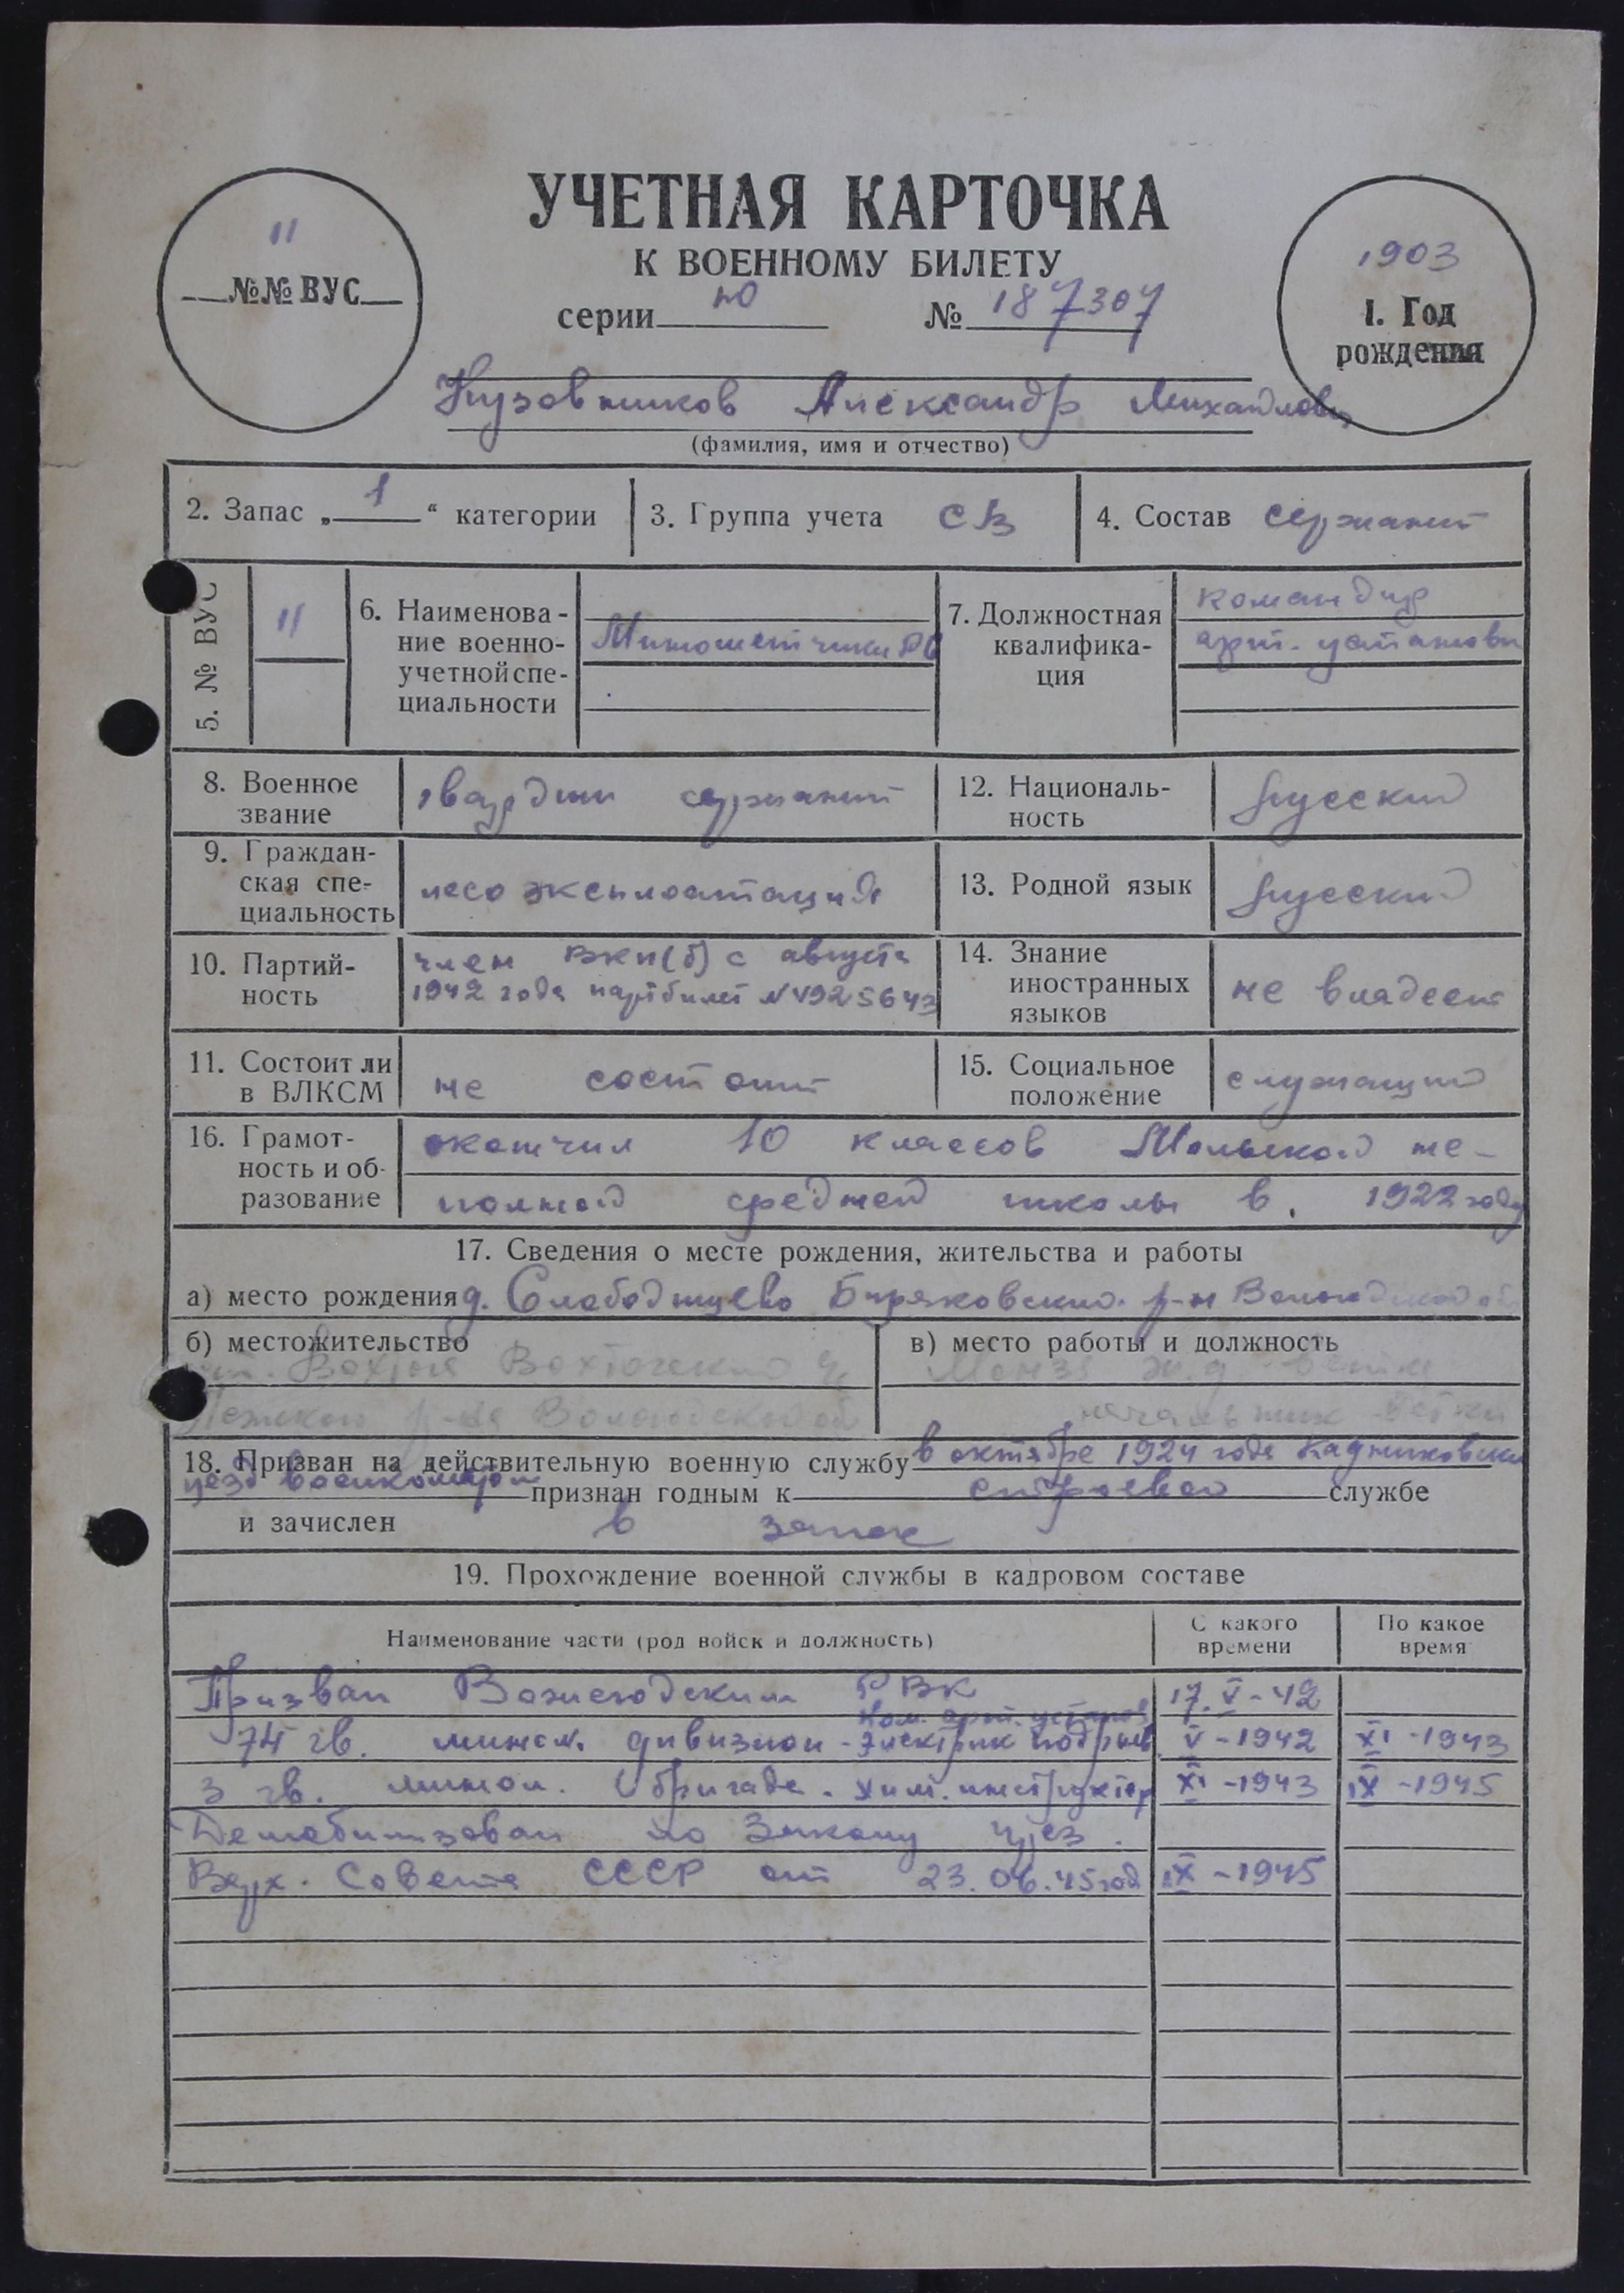 УЧЕТНАЯ КАРТОЧКА
К ВОЕННОМУ БИЛЕТУ
11
№№ ВУС
серии Ю № 187307
1903
1. Год
рождения
Кузовников Александр Михайлович
(фамилия, имя и отчество)
2. Запас „1“ категории
3. Группа учета СВ
4. Состав сержант
5. № ВУС
11
6. Наименова-
ние военно-
учетной спе-
циальности
Минометчики РС
7. Должностная
квалифика-
ция
командир
арт. установки
8. Военное
звание
гвардии сержант
12. Националь-
ность
русский
9. Граждан-
ская спе-
циальность
лесоэксплоатация
13. Родной язык
русский
10. Партий-
ность
член ВКП(б) с августа
1942 года партбилет
14. Знание
иностранных
языков
не владеет
11. Состоит ли
в ВЛКСМ
не состоит
15. Социальное
положение
служащий
16. Грамот-
ность и об-
разование
окончил 10 классов не-
полной средней школы в 1922 году
17. Сведения о месте рождения, жительства и работы
а) место рождения д. Слободищево Биряковский р-н Вологодской об
б) местожительство
Вохтога Вохтожский
р-на Вологодской об
в) место работы и должность
Монза ж.д. ветка
начальник ветки
18. Призван на действительную военную службу в октябре 1924 года Кадниковским
уезд военкоматом признан годным к строевой службе
и зачислен в запас
19. Прохождение военной службы в кадровом составе
Наименование части (род войск и должность)
С какого
времени
По какое
время
Призван Вожегодским РВК 17.V-42
Ком. арт. установ
74 гв. мином. дивизион - электрик подрыв. V-1942 XI-1943
3 гв. мином. бригада. хим. инструктор XI-1943 IX-1945
Демобилизован по Закону През.
Верх. Совета СССР от 23.06.45 год IX-1945